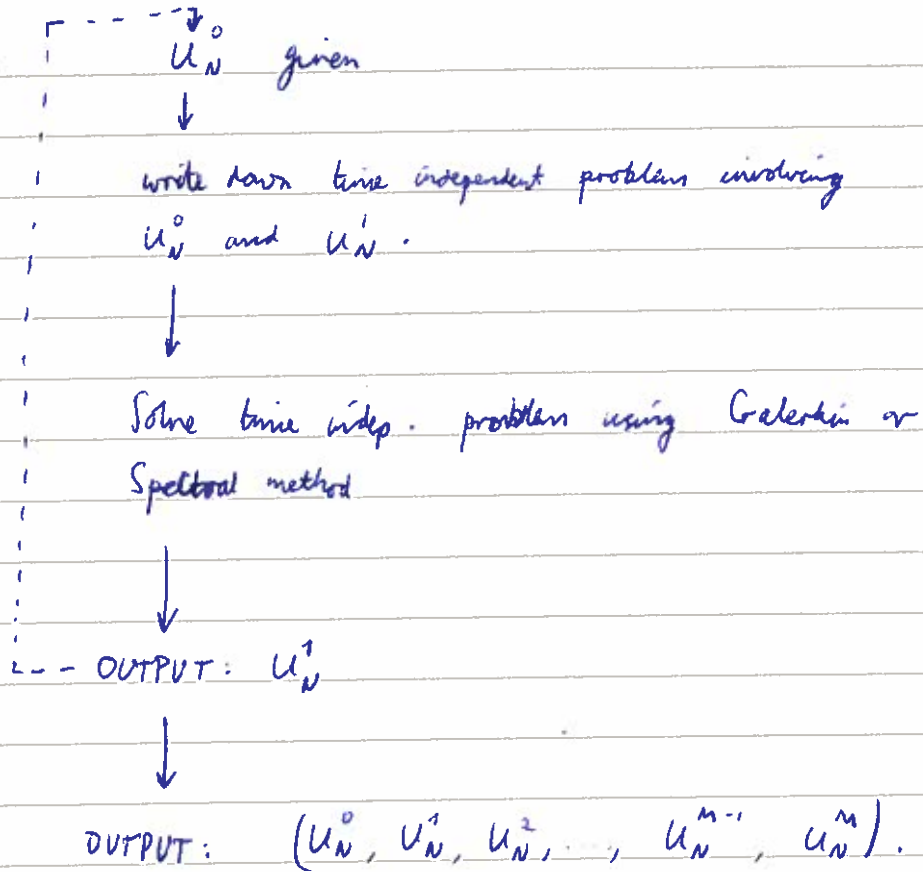 U_N^0 given
write down time independent problem involving
U_N^0 and U_N^1.
Solve time indep. problem using Galerkin or
Spectral method
OUTPUT: U_N^1
OUTPUT: (U_N^0, U_N^1, U_N^2, ..., U_N^{M-1}, U_N^M).